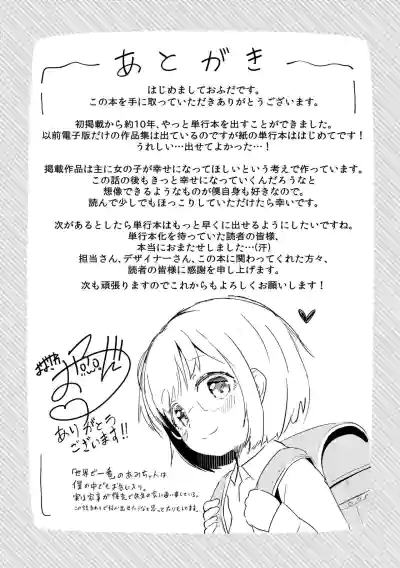 あとがき
はじめましておふだです。
この本を手に取っていただきありがとうございます。
初掲載から約10年、やっと単行本を出すことができました。
以前電子版だけの作品集は出ているのですが紙の単行本ははじめてです！
うれしい…出せてよかった…！
掲載作品は主に女の子が幸せになってほしいという考えで作っています。
この話の後もきっと幸せになっていくんだろうなと
想像できるようなものが僕自身も好きなので。
読んで少しでもほっこりしていただけたら幸いです。
次があるとしたら単行本はもっと早くに出せるようにしたいですね。
単行本化を待っていた読者の皆様、
本当におまたせしました…(汗)
担当さん、デザイナーさん、この本に関わってくれた方々、
読者の皆様に感謝を申し上げます。
次も頑張りますのでこれからもよろしくお願いします！
ありがとう
ございます!!
「世界で一番」のあみちゃんは
僕の中でもお気に入り。